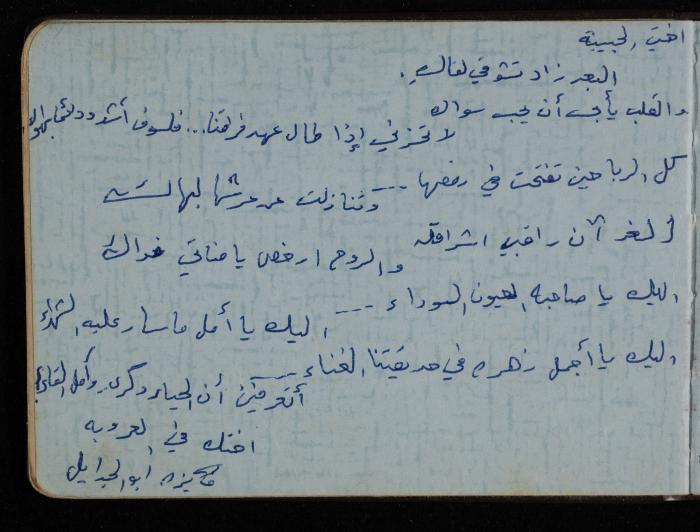 اختي الحبيبة
البعد زاد تشوقي لقاك.
والقلب يأبى أن يحب سواك
لا تحزني إذا طال عهد فراقنا... فلسوف أشدو دائما
كل الرياحين تفتحت في روضها --- وتنازلت عن عرشها لبهاك
الغر الآن راقب اشراقك
والروح ارخص يا فداك
اليك يا صاحبة العيون السوداء --- اليك يا أمل ما سار عليه الشهداء
اليك يا أجمل زهره في حديقتنا الغناء --- أتعرفين أن الحياه ذكرى وأمل اللقاء
اختك في العروبه
فايزه ابو الجدايل